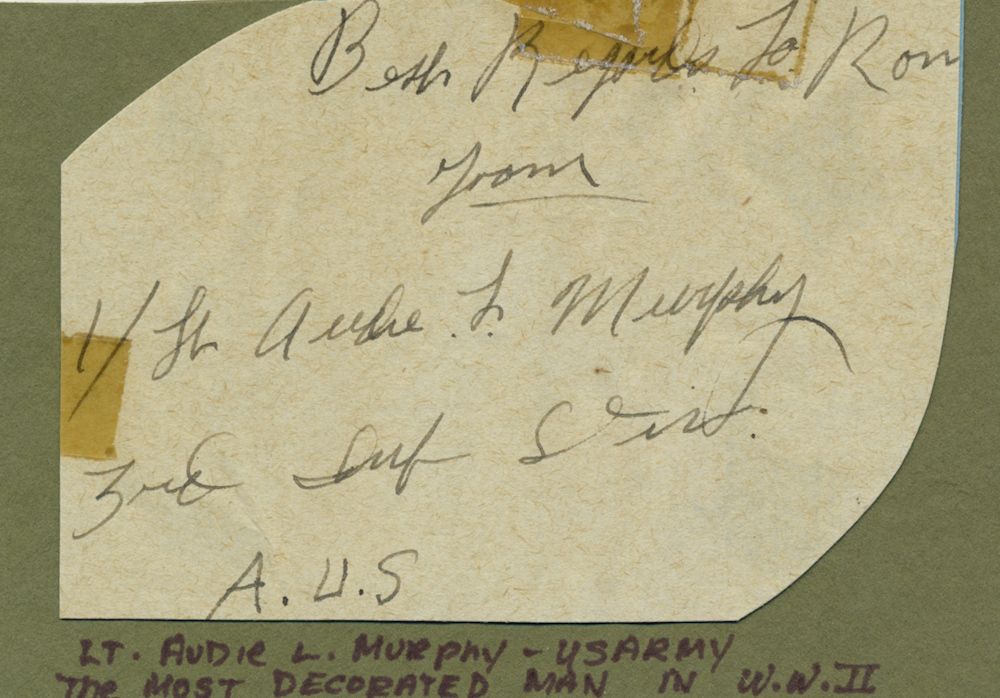 Best Regards To Ron
From
1/ Lt Audie L. Murphy
3rd Inf Div.
A. U. S
LT. AUDIE L. MURPHY - USARMY
THE MOST DECORATED MAN IN W.W. II